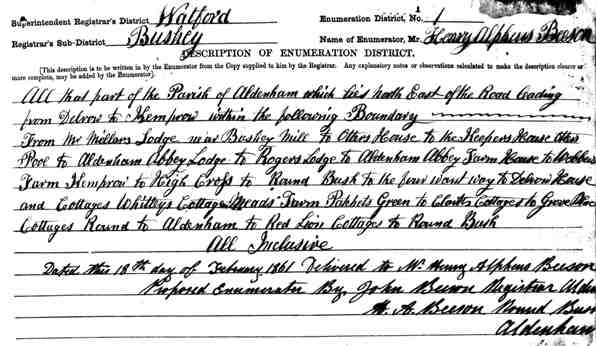 Superintendent Registrar's District, Watford Enumeration District, No. 1
Registrar's Sub-District, Bushey Name of Enumerator, Mr. Henry Alpheus Beeson
DESCRIPTION OF ENUMERATION DISTRICT.
[This description is to be written in by the Enumerator from the Copy supplied to him by the Registrar. Any explanatory notes or observations calculated to make the description clearer or
more complete, may be added by the Enumerator.]
All that part of the Parish of Aldenham which lies North East of the Road leading
from Delrow to Kemprow within the following Boundary
From Mr Millars Lodge near Bushey Mill to Otters House to the Keepers House Otters
Pool to Aldenham Abbey Lodge to Rogers Lodge to Aldenham Abbey Farm House to
Farm Kemprow to High Cross to Round Bush to the four want way to Delrow House
and Cottages Whittleys Cottages Meads Farm Pabbits Green to Clarks Cottages to Grove Place
Cottages Round to Aldenham to Red Lion Cottages to Round Bush
All Inclusive
Dated this 18th day of February 1861 Delivered to Mr Henry Alpheus Beeson
Proposed Enumerator By John Beeson Registrar Alden
H. A. Beeson Round Bush
Aldenham